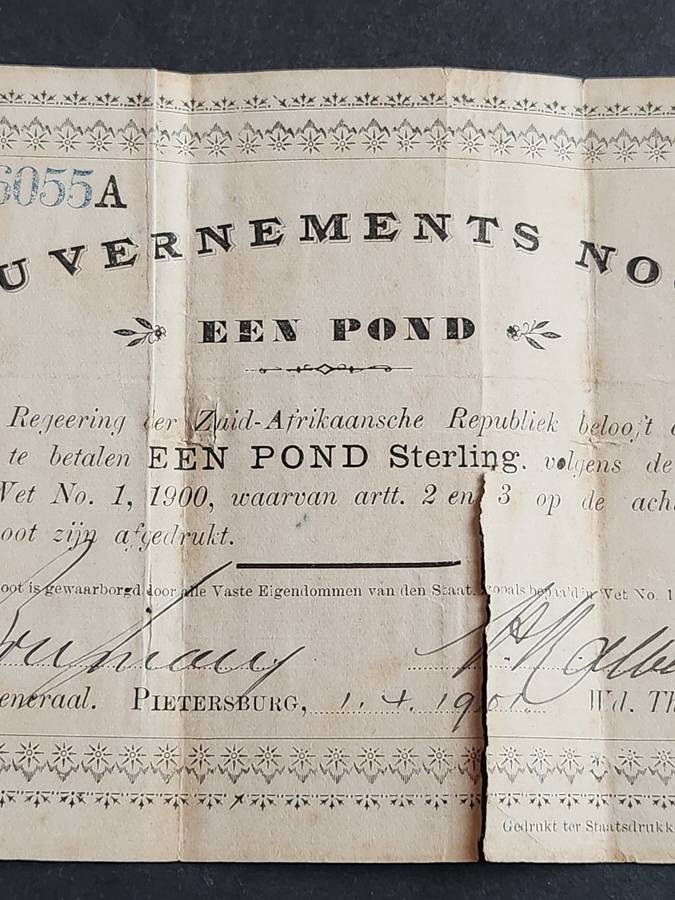 6055 A
UVERNEMENTS NOO
EEN POND
Regeering der Zuid-Afrikaansche Republiek belooft
te betalen EEN POND Sterling. volgens de
Wet No. 1, 1900, waarvan artt. 2 en 3 op de ach
oot zijn afgedrukt.
oot is gewaarborgd door alle Vaste Eigendommen van den Staat, zooals bepaald in Wet No. 1
eneraal. PIETERSBURG, 1. 4. 1901. Wd. Th
Gedrukt ter Staatsdrukk